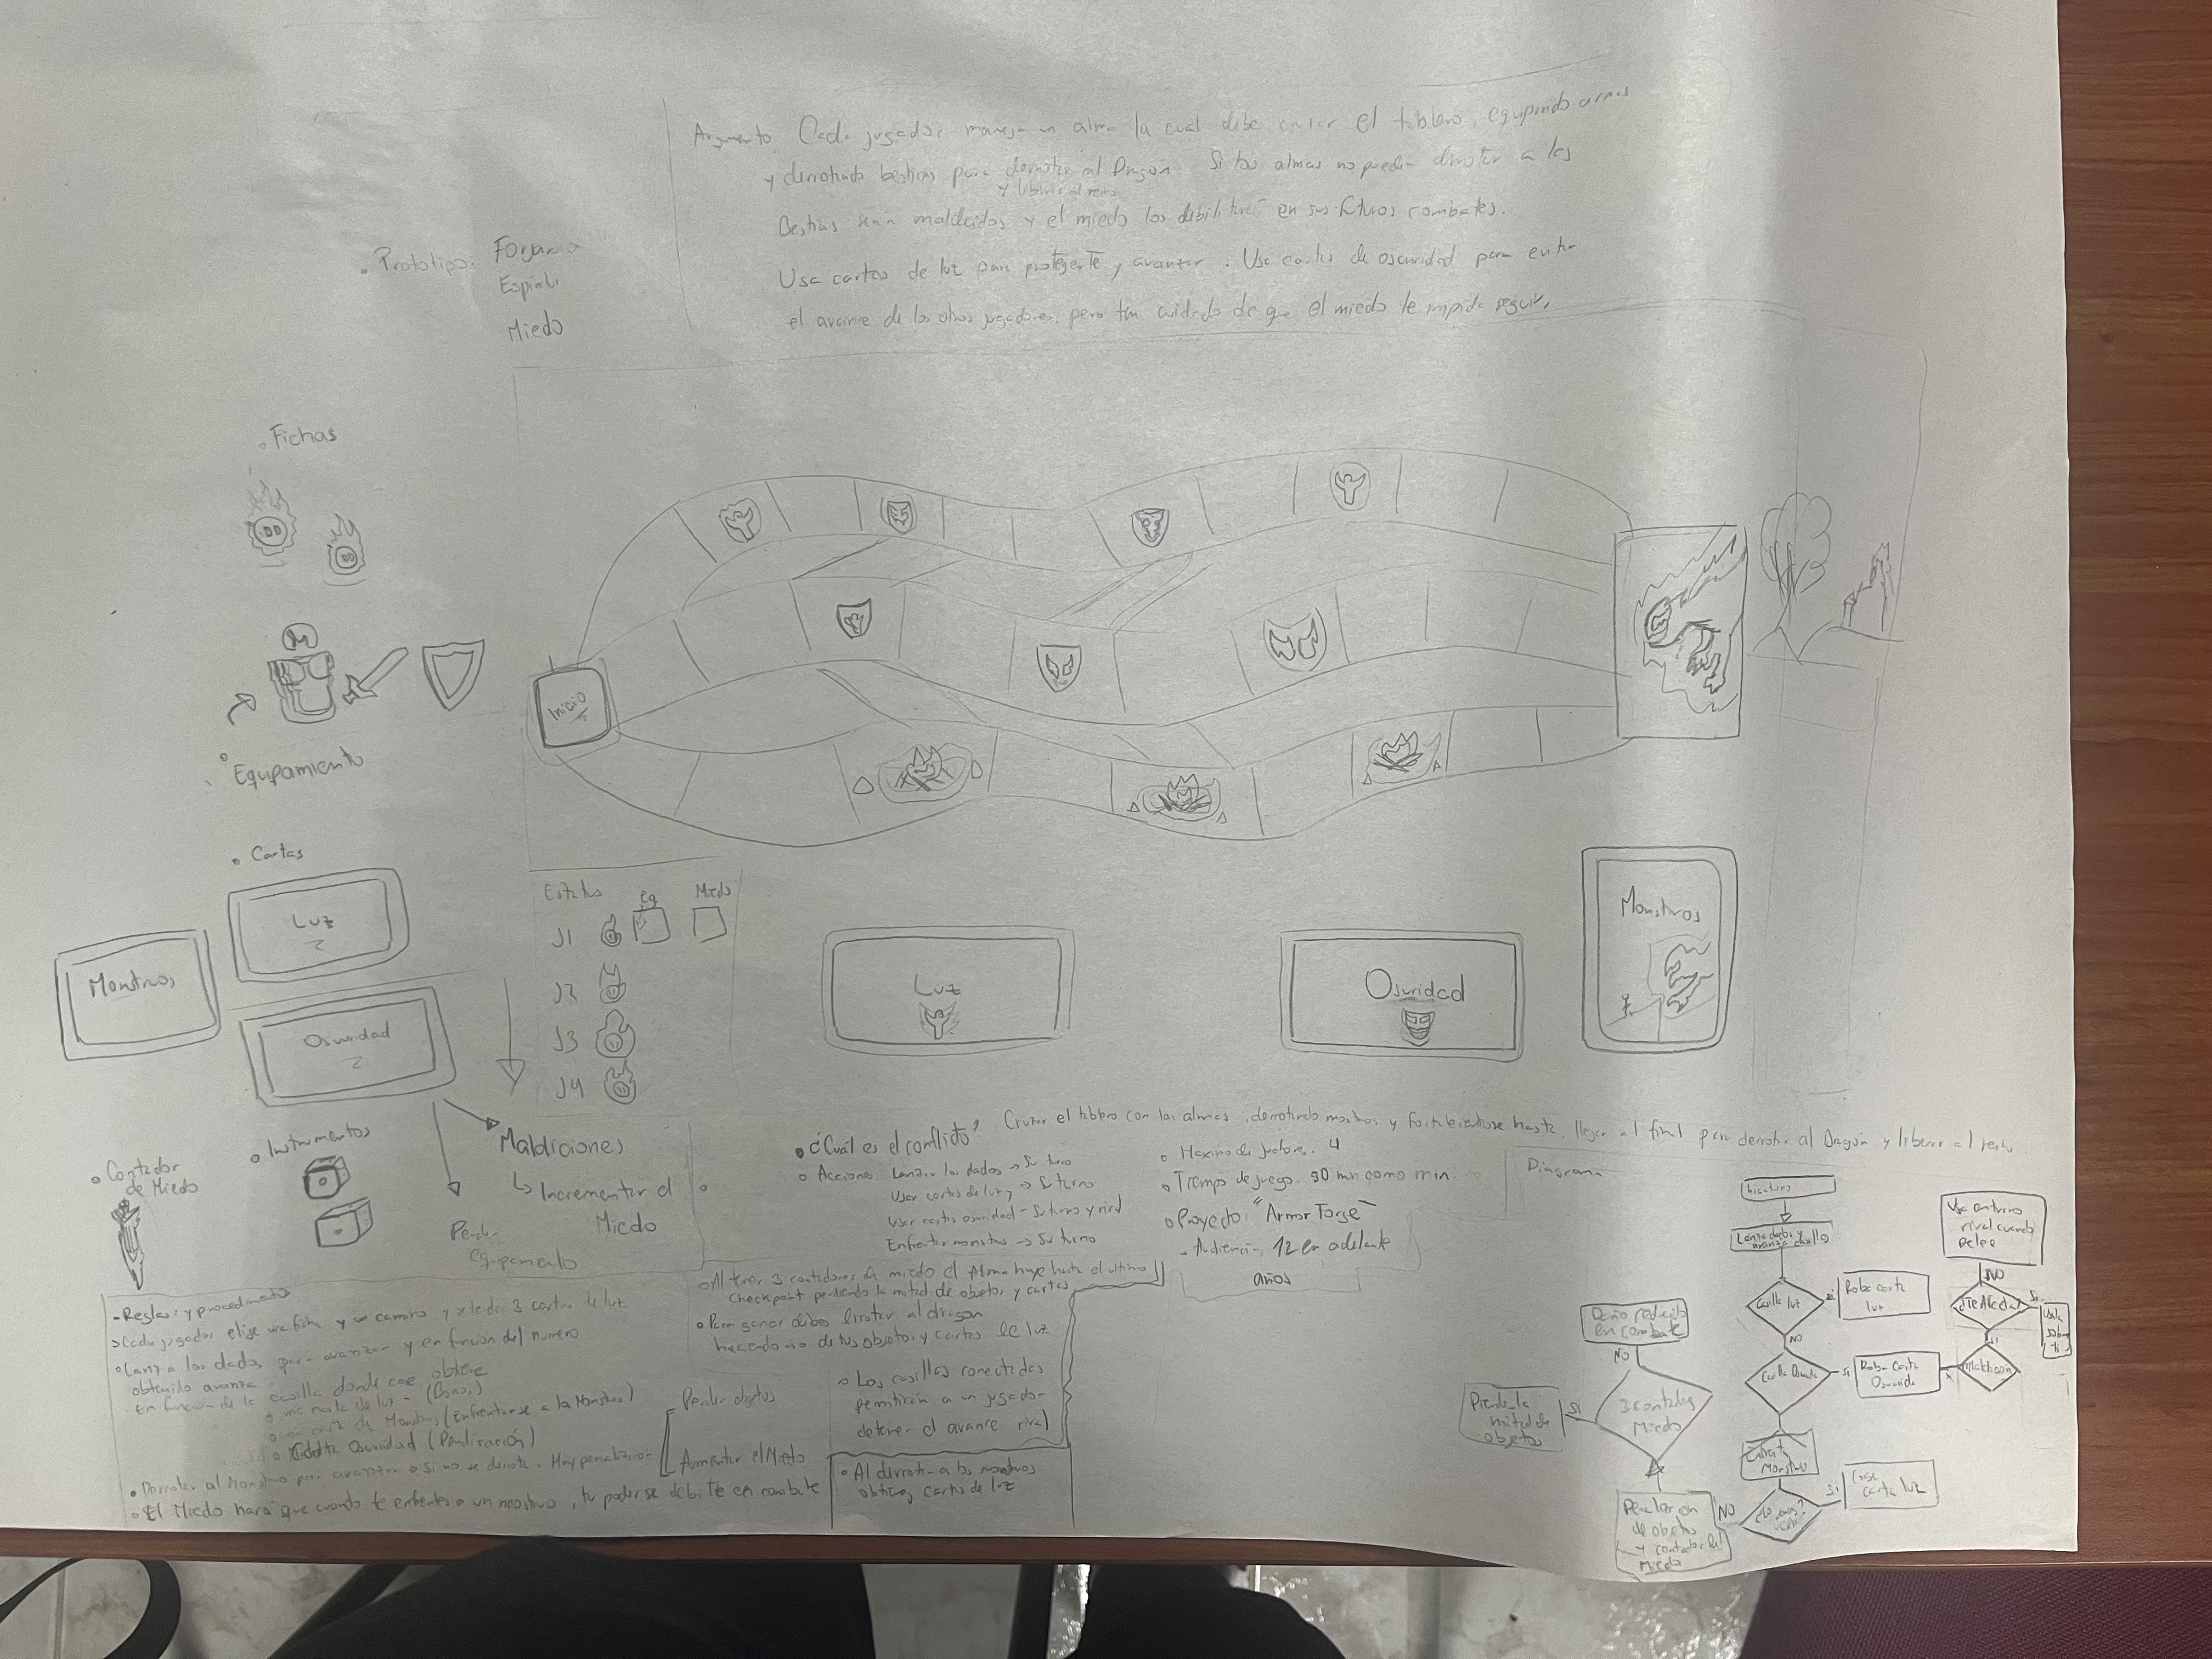 Argumento. Cada jugador maneja un alma la cual debe cruzar el tablero, equipando armas
y derrotando bestias para derrotar al Dragón Si las almas no pueden derrotar a las
y liberar al reino
Bestias serán maldecidos y el miedo los debilitará en sus futuros combates.
Usa cartas de luz para protegerte y avanzar. Usa cartas de oscuridad para evitar
el avance de los otros jugadores, pero ten cuidado de que el miedo te impida seguir.
Prototipo:
Miedo
Fichas
Equipamiento
Inicio
Cartas
Luz
Monstruos
Oscuridad
Estatus Eq Miedo
J1
J2
J3
J4
Luz
Osuridad
Monstruos
Contador de Miedo
Instrumentos
Maldiciones
Incrementar el
Miedo
Perder
Equipamento
¿Cuál es el conflicto? Cruzar el tablero con las almas, derrotando monstruos y fortaleciéndose hasta llegar al final para derrotar al Dragón y liberar al reino
Acciones: Lanzar los dados → Su turno
Usar cartas de luz → Su turno
Usar cartas osuridad - Su turno y rival
Enfrentar monstruos → Su turno
Máximo de jugadores: 4
Tiempo de juego: 30 min como min.
Proyecto: "Armor Forge"
Audiencia, 12 en adelante
años
- Reglas y procedimientos
Cada jugador elige una ficha y un camino y se le da 3 cartas de luz
Lanza los dados para avanzar y en función del numero
obtenido avanza
En función de la casilla donde cae obtiene
una carta de luz - (Bonos)
una carta de Monstruo (Enfrentarse a los Monstruos)
Carta Osuridad (Penalización)
Derrotar al Monstruo para avanzar o, Si no se derrota. Hay penalización
Perder objetos
Aumentar el Miedo
El Miedo hará que cuando te enfrentes a un monstruo, tu poder se debilite en combate
Al tener 3 contadores de miedo el Alma huye hasta el ultimo
Checkpoint perdiendo la mitad de objetos y cartas
Para ganar debes derrotar al dragon
haciendo uso de tus objetos y cartas de luz
Las casillas conectadas
permitirán a un jugador
detener el avance rival
Al derrotar a los monstruos
obtienes cartas de luz
Diagrama
Lanza dados y
avanza casilla
Casilla luz
Si
Roba carta
luz
NO
Casilla Osuridad
Si
Roba carta
Osuridad
Maldición
Si
¿Te Afecta?
Si
Usala
sobre
ti
NO
Usa en turno
rival cuando
pelee
Monstruo
Si
carta luz
NO
Penalización
de objeto
y contador de
Miedo
3 contadores
Miedo
Si
Pierde la
mitad de
objetos
NO
Daño reducido
en combate